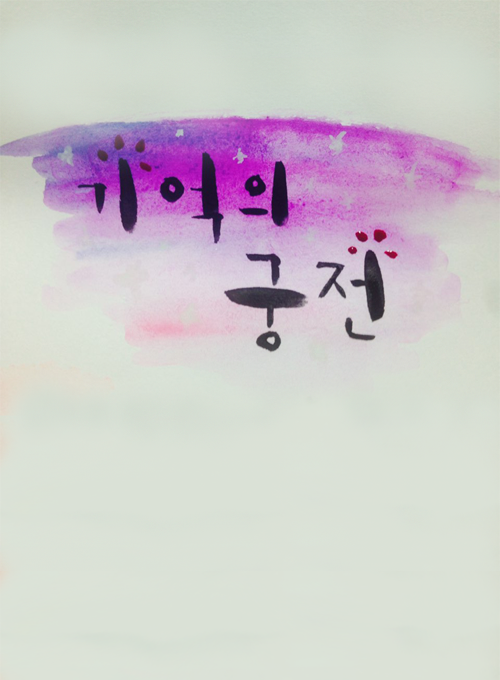 기억의
궁전